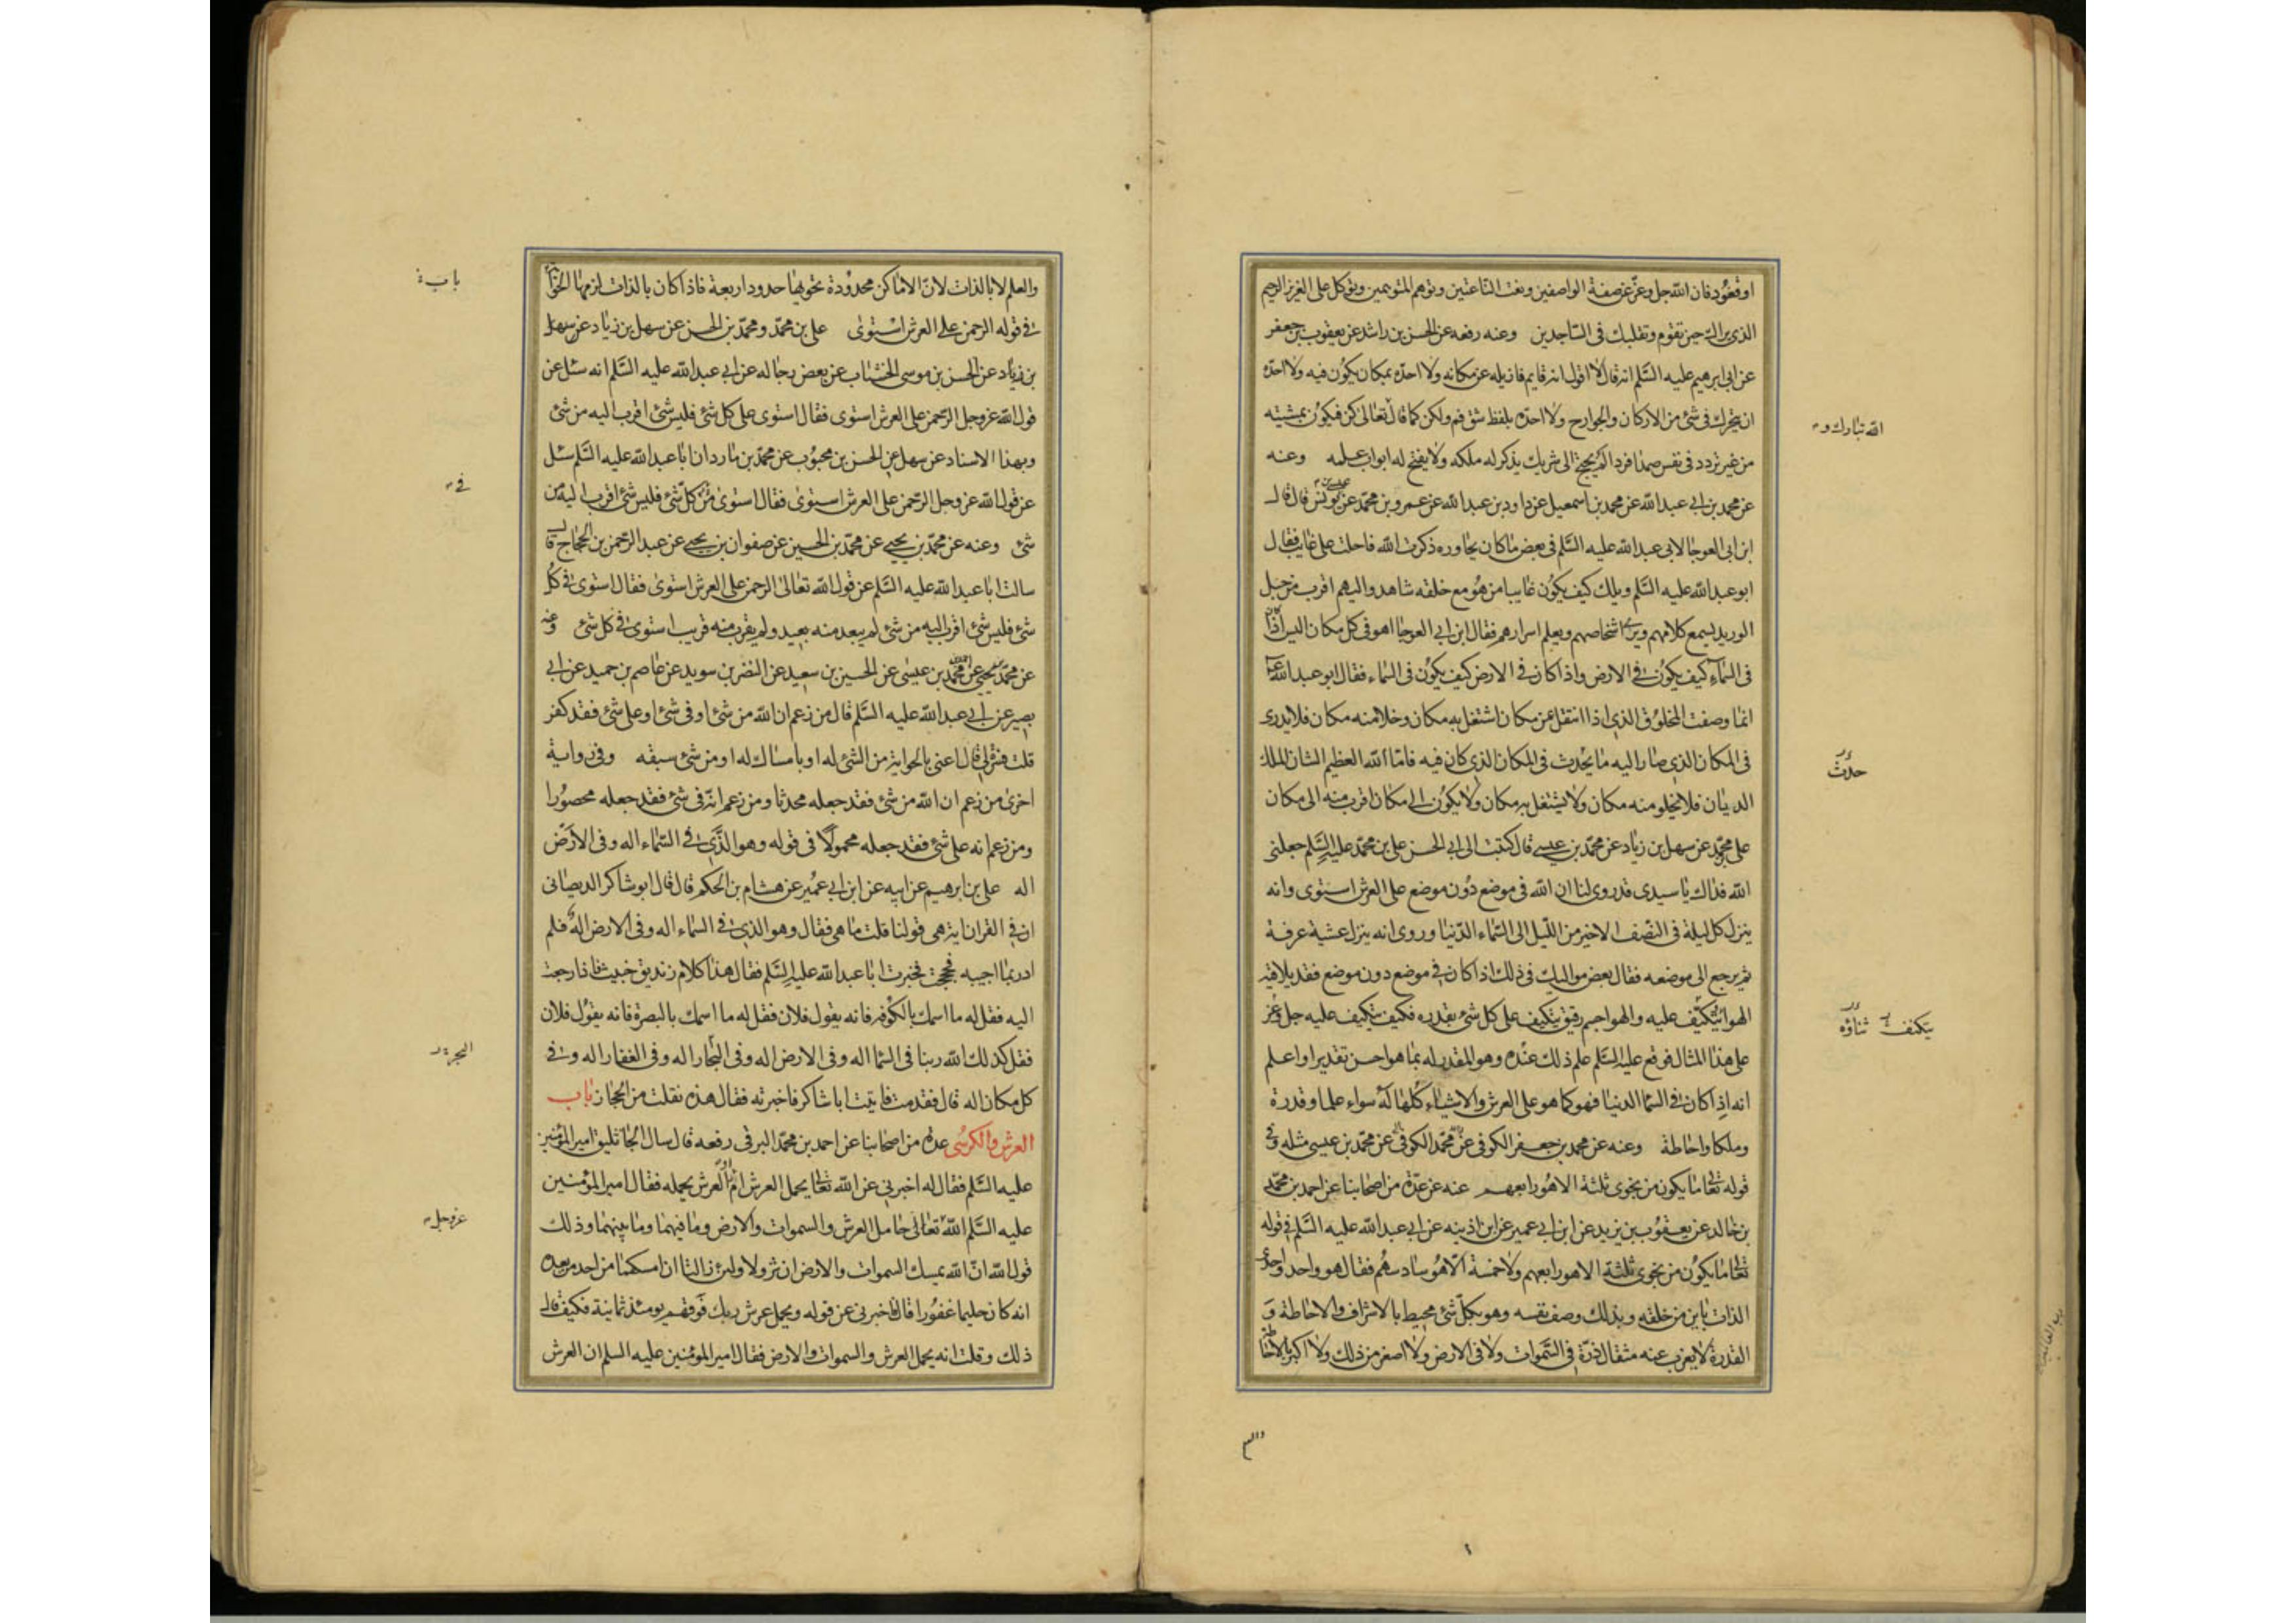 او قعود فان الله جل وعز عن صفة الواصفين ونعت الناعتين وتوهم المتوهمين وتوكل على العزيز الرحيم
الذى يراك حين تقوم وتقلبك فى الساجدين وعنه رفعه عن الحسن بن راشد عن يعقوب بن جعفر
عن ابى ابرهيم عليه السلم انه قال لا اقول انه قايم فازيله عن مكانه ولا احده بمكان يكون فيه ولا احده
ان يتحرك فى شئ من الاركان والجوارح ولا احده بلفظ شق فم ولكن كما قال تعالى كن فيكون بمشيته
الله تبارك و
من غير تردد فى نفس صمدا فردا لم يحتج الى شريك يذكر له ملكه ولا يفتح له ابواب علمه وعنه
عن محمد بن ابى عبد الله عن محمد بن اسمعيل عن داود بن عبد الله عن عمرو بن محمد عن عيسى بن يونس قال قال
ابن ابى العوجا لابى عبد الله عليه السلم فى بعض ما كان يحاوره ذكرت الله فاحلت على غايب فقال
ابو عبد الله عليه السلم ويلك كيف يكون غايبا من هو مع خلقه شاهد واليهم اقرب من حبل
الوريد يسمع كلامهم ويرى اشخاصهم ويعلم اسرارهم فقال ابن ابى العوجا اهو فى كل مكان اليس اذا كان
فى السماء كيف يكون فى الارض واذا كان فى الارض كيف يكون فى السماء فقال ابو عبد الله
انما وصفت المخلوق الذى اذا انتقل عن مكان اشتغل به مكان وخلا منه مكان فلا يدرى
فى المكان الذى صار اليه ما يحدث فى المكان الذى كان فيه فاما الله العظيم الشان الملك
حدث
الديان فلا يخلو منه مكان ولا يشتغل به مكان ولا يكون الى مكان اقرب منه الى مكان
على بن محمد عن سهل بن زياد عن محمد بن عيسى قال كتبت الى ابى الحسن على بن محمد عليه السلم جعلنى
الله فداك يا سيدى قد روى لنا ان الله فى موضع دون موضع على العرش استوى وانه
ينزل كل ليلة فى النصف الاخير من الليل الى السماء الدنيا وروى انه ينزل عشية عرفة
ثم يرجع الى موضعه فقال بعض مواليك فى ذلك اذا كان فى موضع دون موضع فقد يلاقيه
الهواء ويتكيف عليه والهوا جسم رقيق يتكيف على كل شئ بقدره فكيف يتكيف عليه جل وعز
يتكنف ثناؤه
على هذا المثال فوقع عليه السلم علم ذلك عنده وهو المقدر له بما هو احسن تقديرا واعلم
انه اذا كان فى السما الدنيا فهو كما هو على العرش والاشياء كلها له سواء علما وقدرة
وملكا واحاطة وعنه عن محمد بن جعفر الكوفى عن محمد الكوفى عن محمد بن عيسى مثله وفى
قوله تعالى ما يكون من نجوى ثلثة الا هو رابعهم عنه عن عدة من اصحابنا عن احمد بن محمد
بن خالد عن يعقوب بن يزيد عن ابن ابى عمير عن ابن اذينه عن ابى عبد الله عليه السلم فى قوله
تعالى ما يكون من نجوى ثلثة الا هو رابعهم ولا خمسة الا هو سادسهم فقال هو واحد واحدى
الذات باين من خلقه وبذلك وصف نفسه وهو بكل شئ محيط بالاشراف والاحاطة و
القدرة لا يعزب عنه مثقال ذرة فى السموات ولا فى الارض ولا اصغر من ذلك ولا اكبر بالاحاطة
والعلم
والعلم لا بالذات لان الاماكن محدودة تحويها حدود اربعة فاذا كان بالذات لزمها الحواية
باب
فى قوله الرحمن على العرش استوى على بن محمد ومحمد بن الحسن عن سهل بن زياد عن سهل
بن زياد عن الحسن بن موسى الخشاب عن بعض رجاله عن ابى عبد الله عليه السلم انه سئل عن
قول الله عز وجل الرحمن على العرش استوى فقال استوى على كل شئ فليس شئ اقرب اليه من شئ
وبهذا الاسناد عن سهل عن الحسن بن محبوب عن محمد بن مارد ان ابا عبد الله عليه السلم سئل
عن قول الله عز وجل الرحمن على العرش استوى فقال استوى من كل شئ فليس شئ اقرب اليه من
فى
شئ وعنه عن محمد بن يحيى عن محمد بن الحسين عن صفوان بن يحيى عن عبد الرحمن بن الحجاج قال
سالت ابا عبد الله عليه السلم عن قول الله تعالى الرحمن على العرش استوى فقال استوى فى كل
شئ فليس شئ اقرب اليه من شئ لم يبعد منه بعيد ولم يقرب منه قريب استوى فى كل شئ وعنه
عن محمد بن يحيى عن احمد بن محمد بن عيسى عن الحسين بن سعيد عن النضر بن سويد عن عاصم بن حميد عن ابى
بصير عن ابى عبد الله عليه السلم قال من زعم ان الله من شئ او فى شئ او على شئ فقد كفر
قلت فسر لى قال اعنى بالحواية من الشئ له او بامساك له او من شئ سبقه وفى رواية
اخرى من زعم ان الله من شئ فقد جعله محدثا ومن زعم انه فى شئ فقد جعله محصورا
ومن زعم انه على شئ فقد جعله محمولا فى قوله وهو الذى فى السماء اله وفى الارض
اله على بن ابرهيم عن ابيه عن ابن ابى عمير عن هشام بن الحكم قال قال ابو شاكر الديصانى
ان فى القران اية هى قولنا قلت ما هى فقال وهو الذى فى السماء اله وفى الارض اله فلم
ادر بما اجيبه فحججت فخبرت ابا عبد الله عليه السلم فقال هذا كلام زنديق خبيث اذا رجعت
اليه فقل له ما اسمك بالكوفة فانه يقول فلان فقل له ما اسمك بالبصرة فانه يقول فلان
فقل كذلك الله ربنا فى السما اله وفى الارض اله وفى البحار اله وفى القفار اله وفى
البحر
كل مكان اله قال فقدمت فاتيت ابا شاكر فاخبرته فقال هذه نقلت من الحجاز باب
العرش والكرسى عدة من اصحابنا عن احمد بن محمد البرقى رفعه قال سال الجاثليق امير المؤمنين
عليه السلم فقال له اخبرنى عن الله تعالى يحمل العرش ام العرش يحمله فقال امير المؤمنين
عليه السلم الله تعالى حامل العرش والسموات والارض وما فيهما وما بينهما وذلك
عز وجل
قول الله ان الله يمسك السموات والارض ان تزولا ولئن زالتا ان امسكهما من احد من بعده
انه كان حليما غفورا قال فاخبرنى عن قوله ويحمل عرش ربك فوقهم يومئذ ثمانية فكيف قال
ذلك وقلت انه يحمل العرش والسموات والارض فقال امير المؤمنين عليه السلم ان العرش